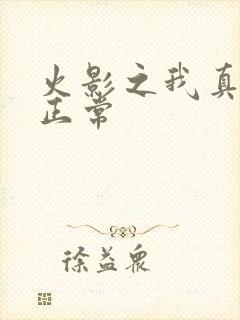 火影之我真
正常
徐益众